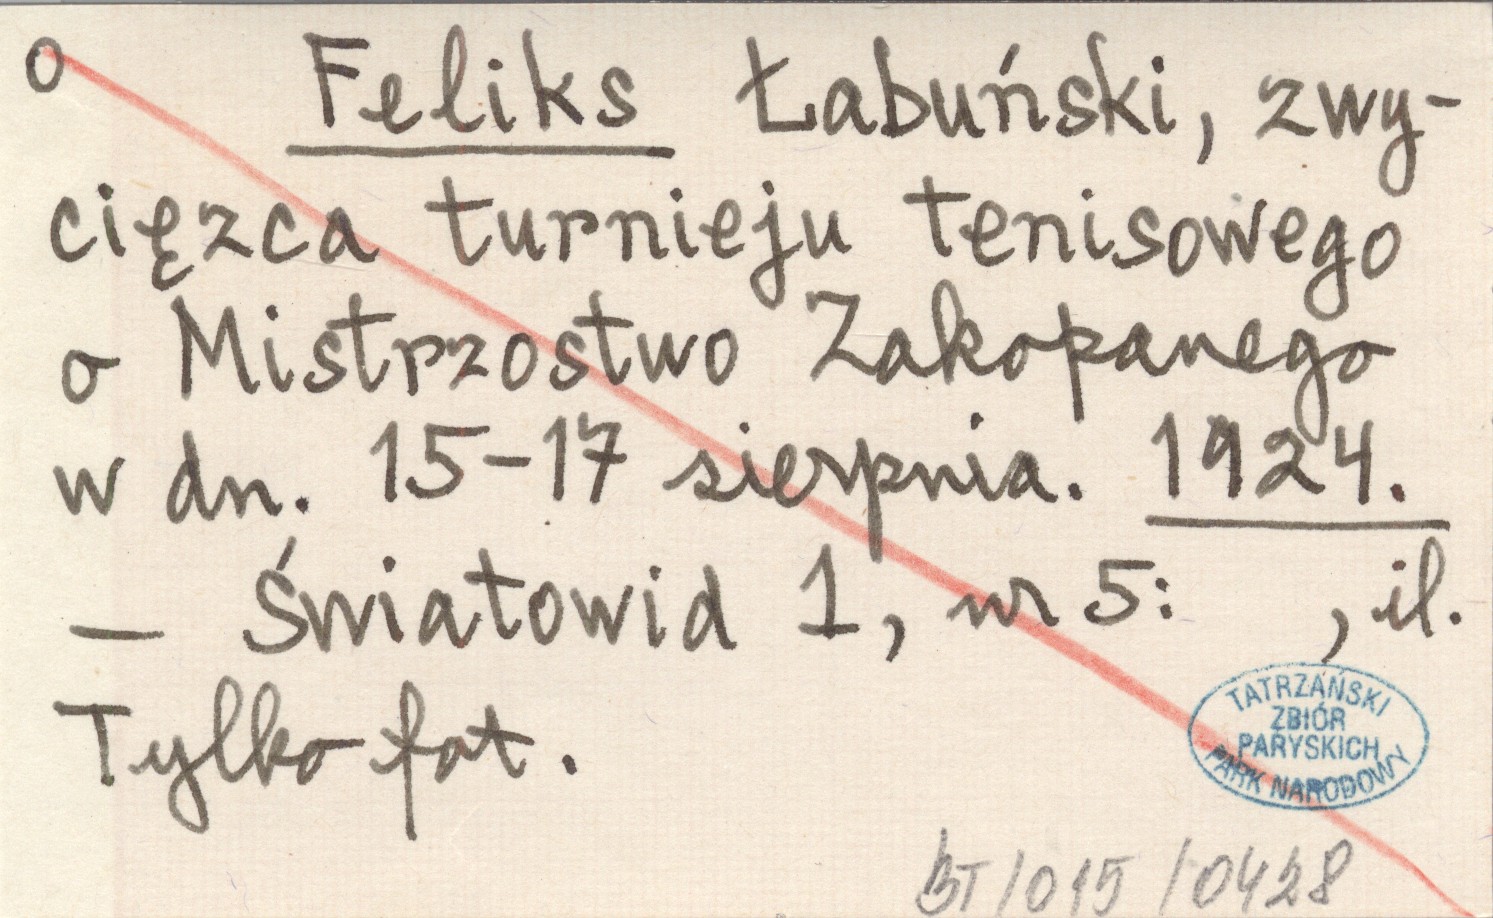 o Feliks Łabuński, zwy-
cięzca turnieju tenisowego
o Mistrzostwo Zakopanego
w dn. 15-17 sierpnia. 1924.
— Światowid 1, nr 5: , il.
Tylko fot.
TATRZAŃSKI
ZBIÓR
PARYSKICH
PARK NARODOWY
BT/015/0428